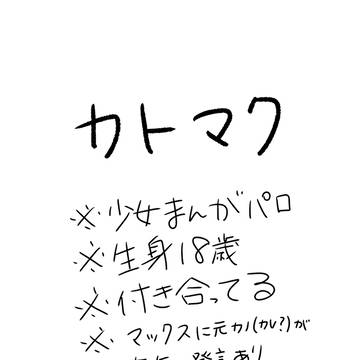 カトマク
※少女まんがパロ
※生身18歳
※付き合ってる
※マックスに元カノ(カレ?)が
発言あり